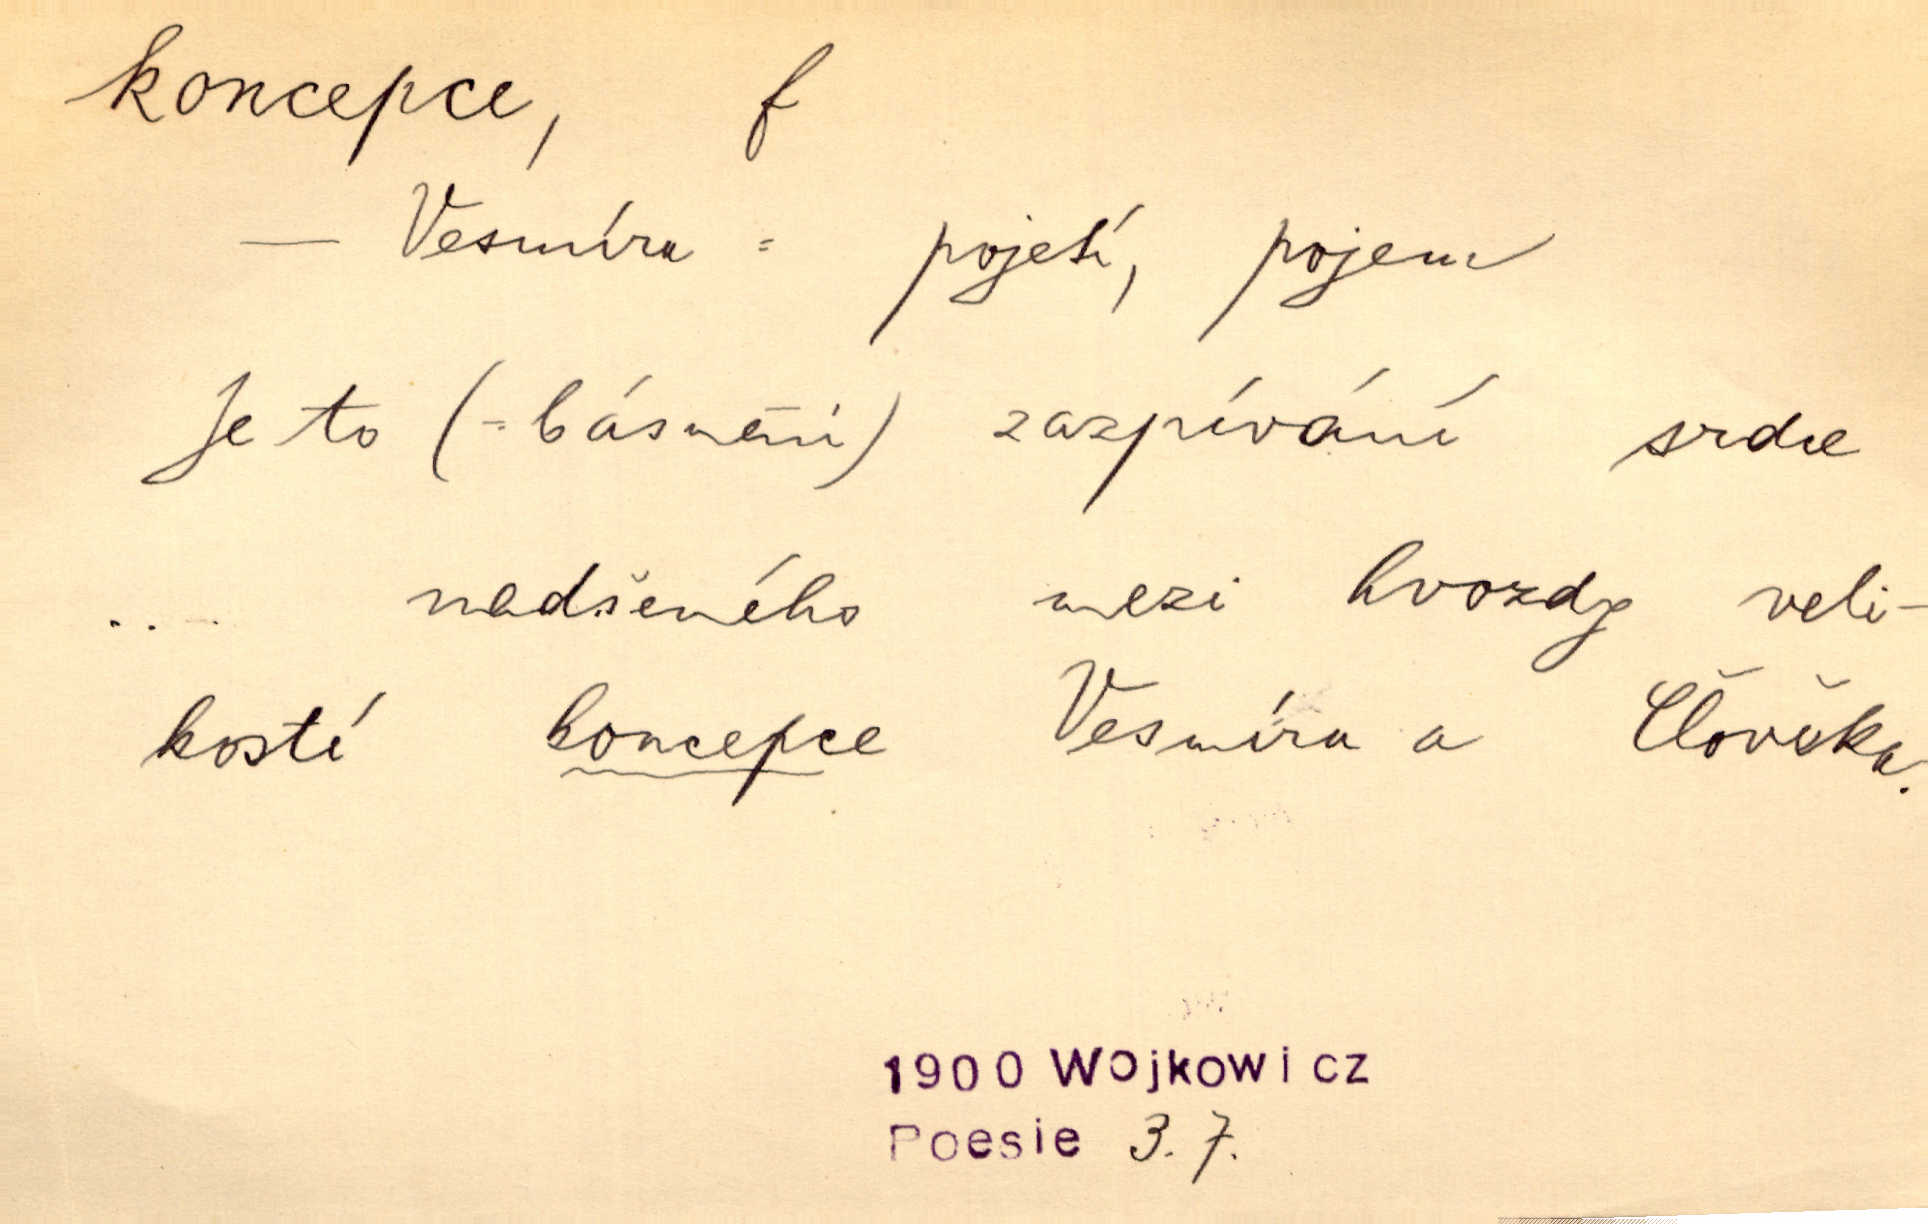 koncepce, f
— Vesmíru = pojetí, pojem
Je to (= básnění) zazpívání srdce
... nadšeného mezi hvozdy veli-
kostí koncepce Vesmíru a Člověka.
1900 Wojkowicz
Poesie 3. 7.